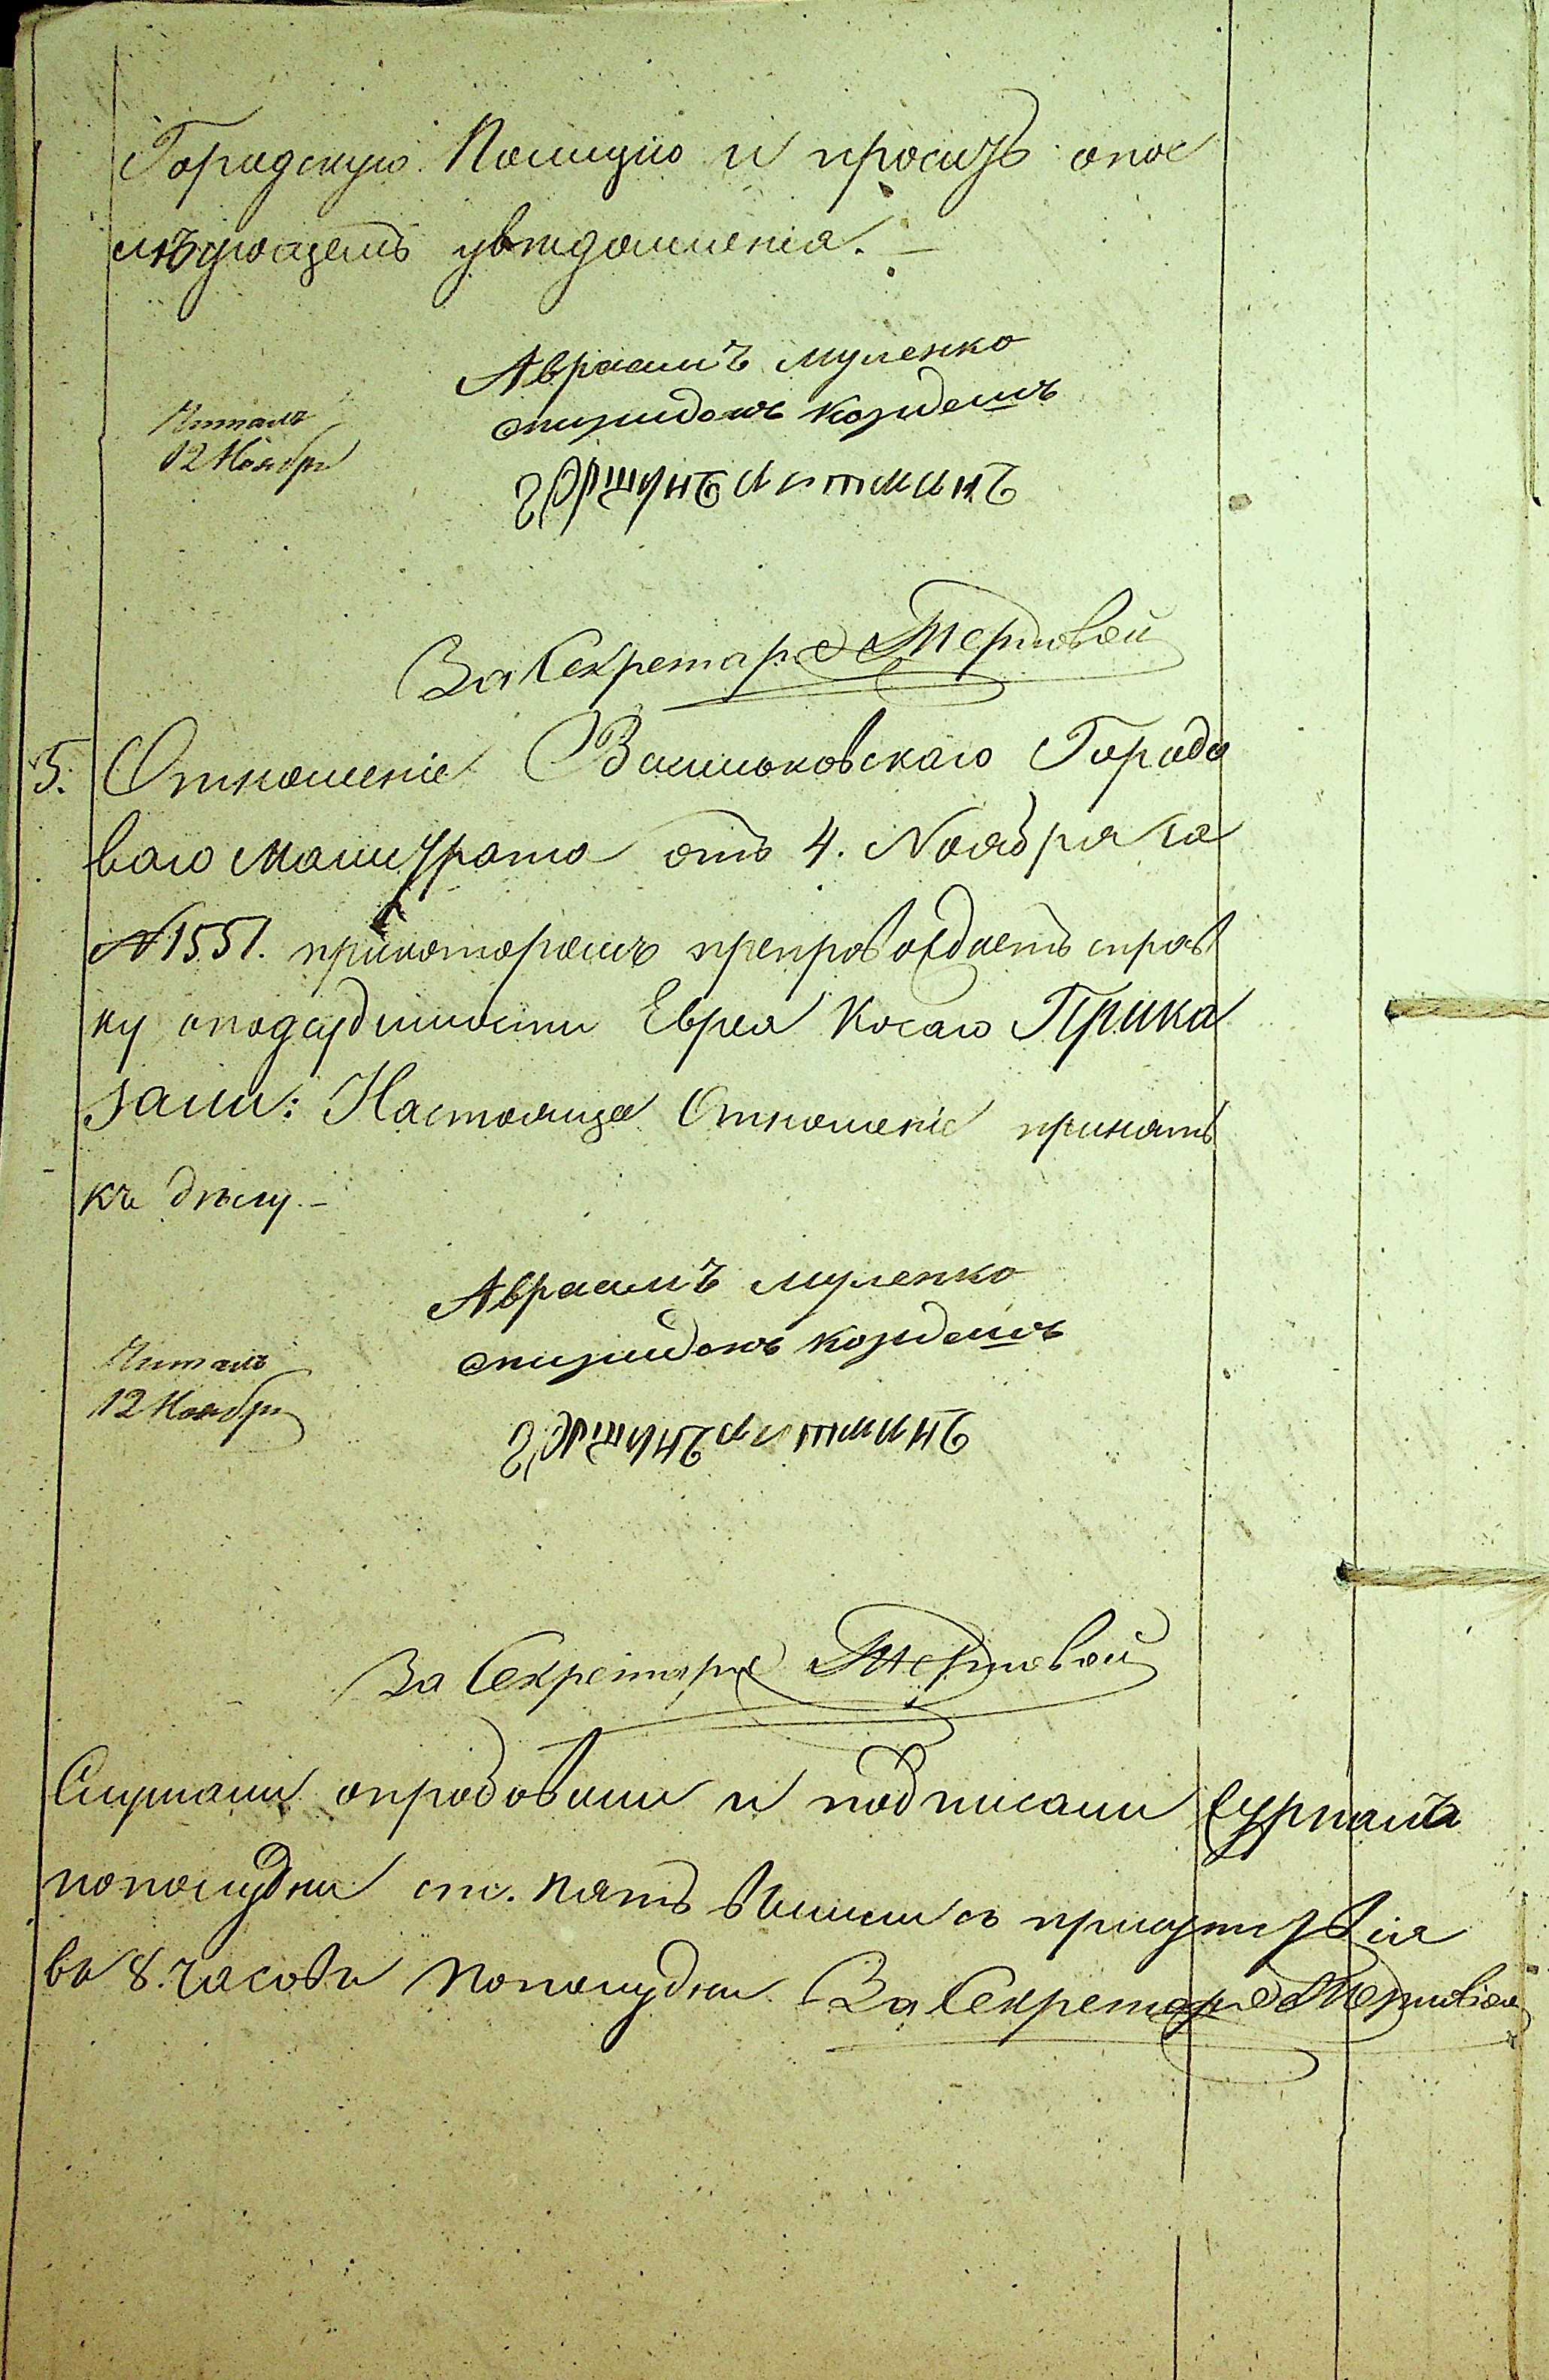 Городскую Полицію и проситъ опос
лѣдующемъ увѣдомленія. —
Авраамъ Муленко
Спиридонъ Кордешъ
Читалъ
12 Ноября
За Секретаря Терновой
5. Отношеніе Васильковскаго Городо
ваго Магистрата отъ 4. Ноября за
№ 1551. прикоторомъ препровождаетъ справ
ку оподсудимости Еврея Косаго Прика
зали: Настояще Отношеніе принять
къ дѣлу. —
Авраамъ Муленко
Спиридонъ Кордешъ
Читалъ
12 Ноября
За Секретаря Терновой
Слушали опробовали и подписали Журналъ
пополудни вышли съ присутствія
въ 8. часовъ пополудни За Секретаря Терновой